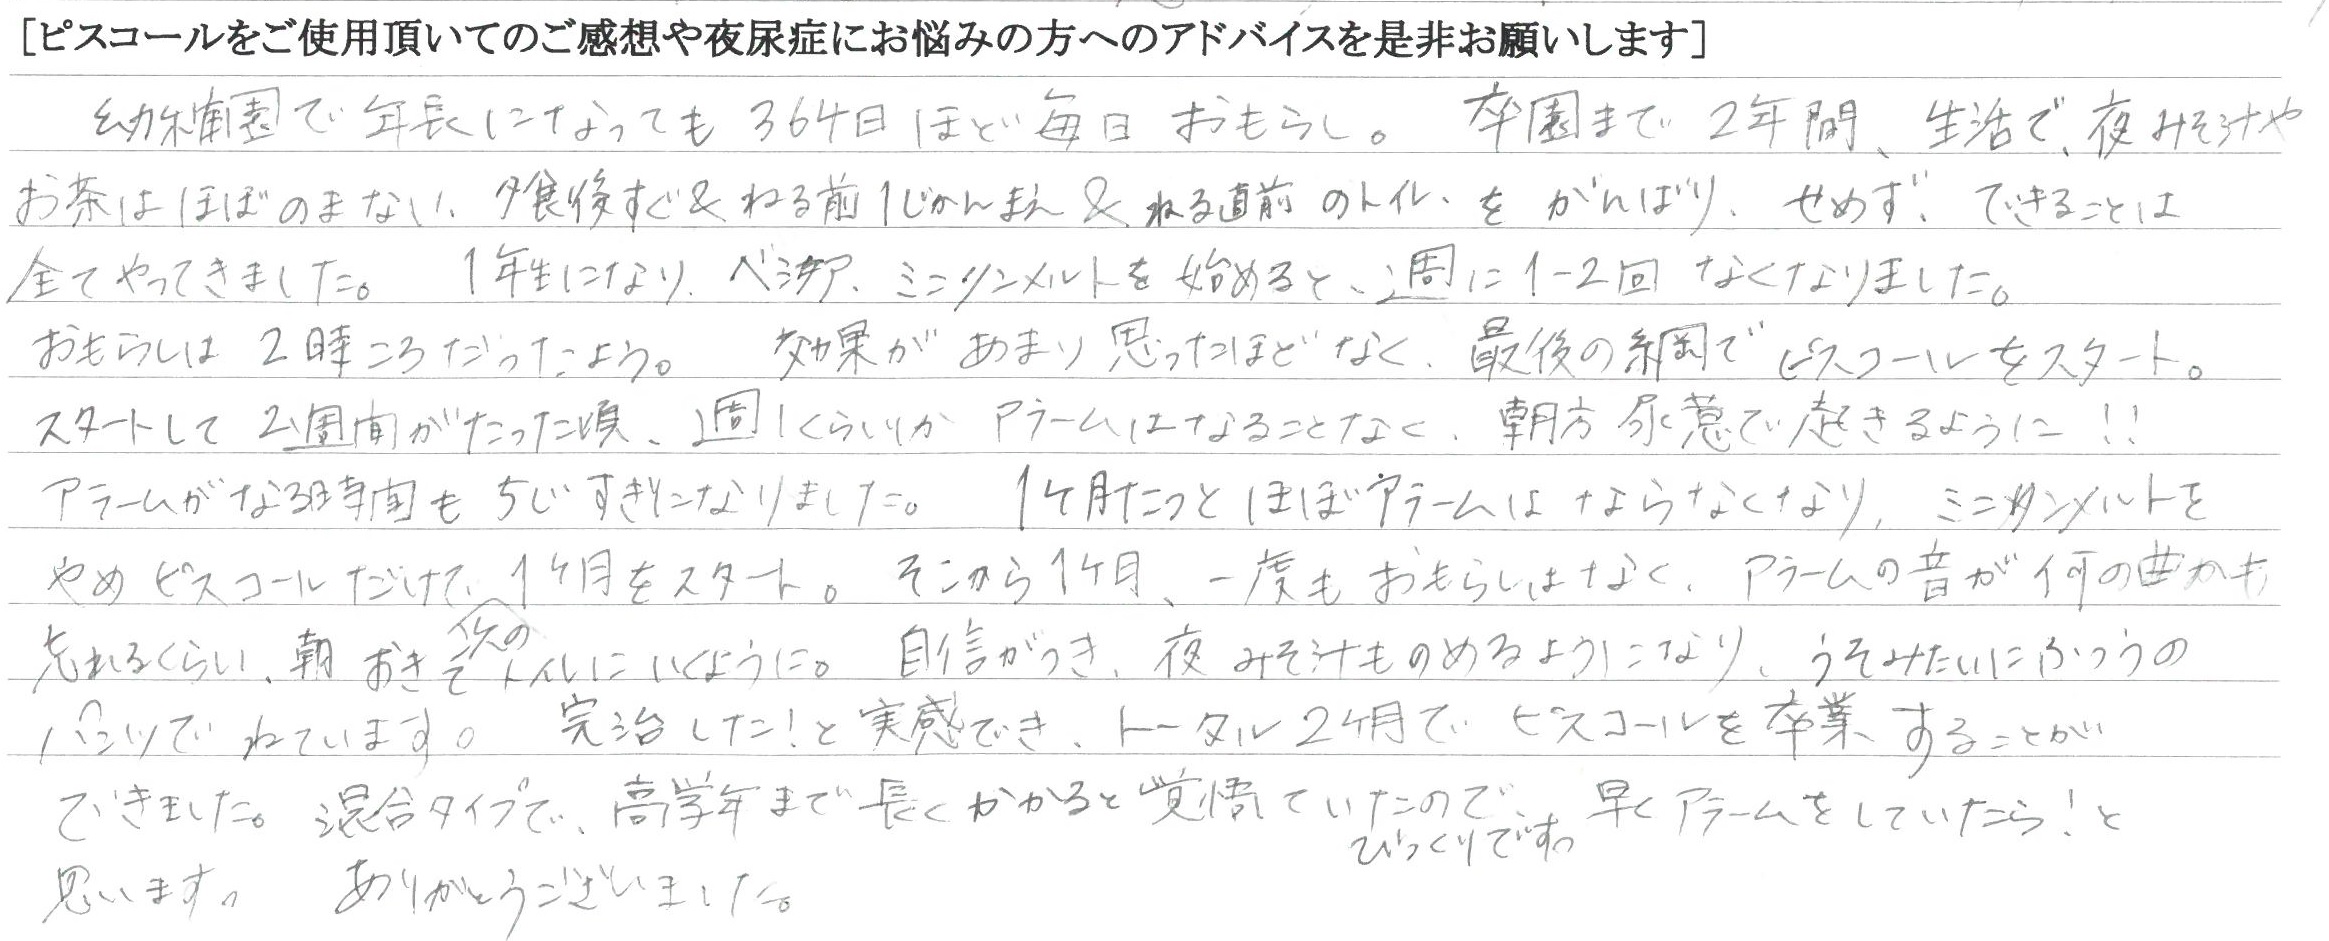 [ピスコールをご使用頂いてのご感想や夜尿症にお悩みの方へのアドバイスを是非お願いします]
幼稚園で年長になっても364日ほど毎日おもらし。 卒園まで2年間、生活で、夜みそ汁や
お茶はほぼのまない、夕食後すぐ&ねる前1じかんまえ&ねる直前のトイレをがんばり、せめず、できることは
全てやってきました。 1年生になり、ベシケア、ミニリンメルトを始めると、週に1-2回なくなりました。
おもらしは2時ころだったよう。 効果があまり思ったほどなく、最後の綱でピスコールをスタート。
スタートして2週間がたった頃、週1くらいかアラームはなることなく、朝方尿意で起きるように!!
アラームがなる時間も5じすぎになりました。 1ヶ月たつとほぼアラームはならなくなり、ミニリンメルトを
やめピスコールだけで、1ヶ月をスタート。そこから1ヶ月、一度もおもらしはなく、アラームの音が何の曲かも
忘れるくらい、朝おきて次のトイレにいくように。自信がつき、夜みそ汁ものめるようになり、うそみたいにふつうの
パンツでねています。 完治した!と実感でき、トータル2ヶ月でピスコールを卒業することが
できました。混合タイプで、高学年まで長くかかると覚悟していたのでびっくりです。早くアラームをしていたら!と
思います。 ありがとうございました。